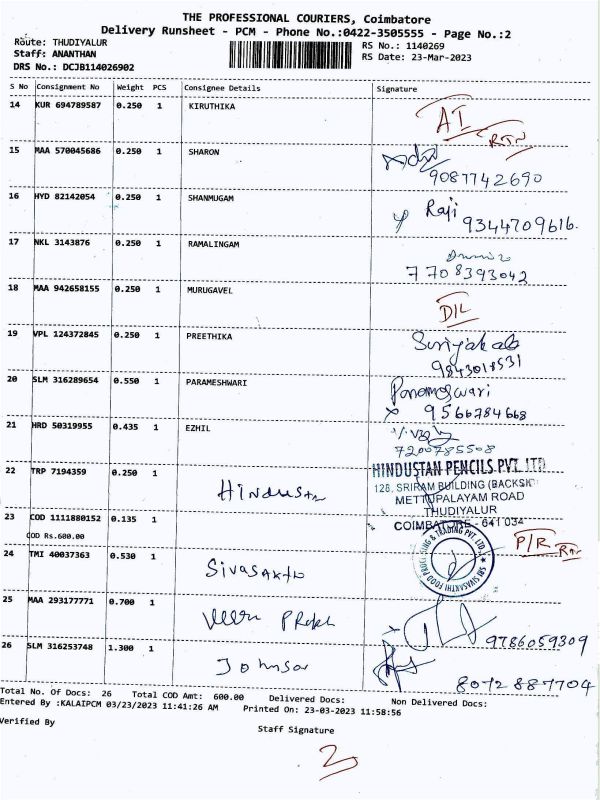 THE PROFESSIONAL COURIERS, Coimbatore
Delivery Runsheet - PCM - Phone No.:0422-3505555 - Page No.:2
Route: THUDIYALUR
RS No.: 1140269
Staff: ANANTHAN
RS Date: 23-Mar-2023
DRS No.: DCJB114026902
S No Consignment No Weight PCS Consignee Details Signature
14 KUR 694789587 0.250 1 KIRUTHIKA AI
RTN
15 MAA 570045686 0.250 1 SHARON
9087742690
16 HYD 82142054 0.250 1 SHANMUGAM Raji
9344709616.
17 NKL 3143876 0.250 1 RAMALINGAM
7708393042
18 MAA 942658155 0.250 1 MURUGAVEL
D/L
19 VPL 124372845 0.250 1 PREETHIKA Suriyakala
9843018531
20 SLM 316289654 0.550 1 PARAMESHWARI Parameswari
x 9566784668
21 HRD 50319955 0.435 1 EZHIL
7200785508
22 TRP 7194359 0.250 1 Hindustan
HINDUSTAN PENCILS PVT. LTD
128, SRIRAM BUILDING (BACKSI
METTUPALAYAM ROAD
THUDIYALUR
COIMBATORE - 641 034
23 COD 1111880152 0.135 1
COD Rs.600.00
P/R RTN
24 TMI 40037363 0.530 1 Sivasakthi
SRI SIVASAKTHI FOOD PROCESSING & TRADING PVT. LTD.
25 MAA 293177771 0.700 1
9786059309
26 SLM 316253748 1.300 1 Johnson
8072887704
Total No. Of Docs: 26 Total COD Amt: 600.00 Delivered Docs: Non Delivered Docs:
Entered By :KALAIPCM 03/23/2023 11:41:26 AM Printed On: 23-03-2023 11:58:56
Verified By
Staff Signature